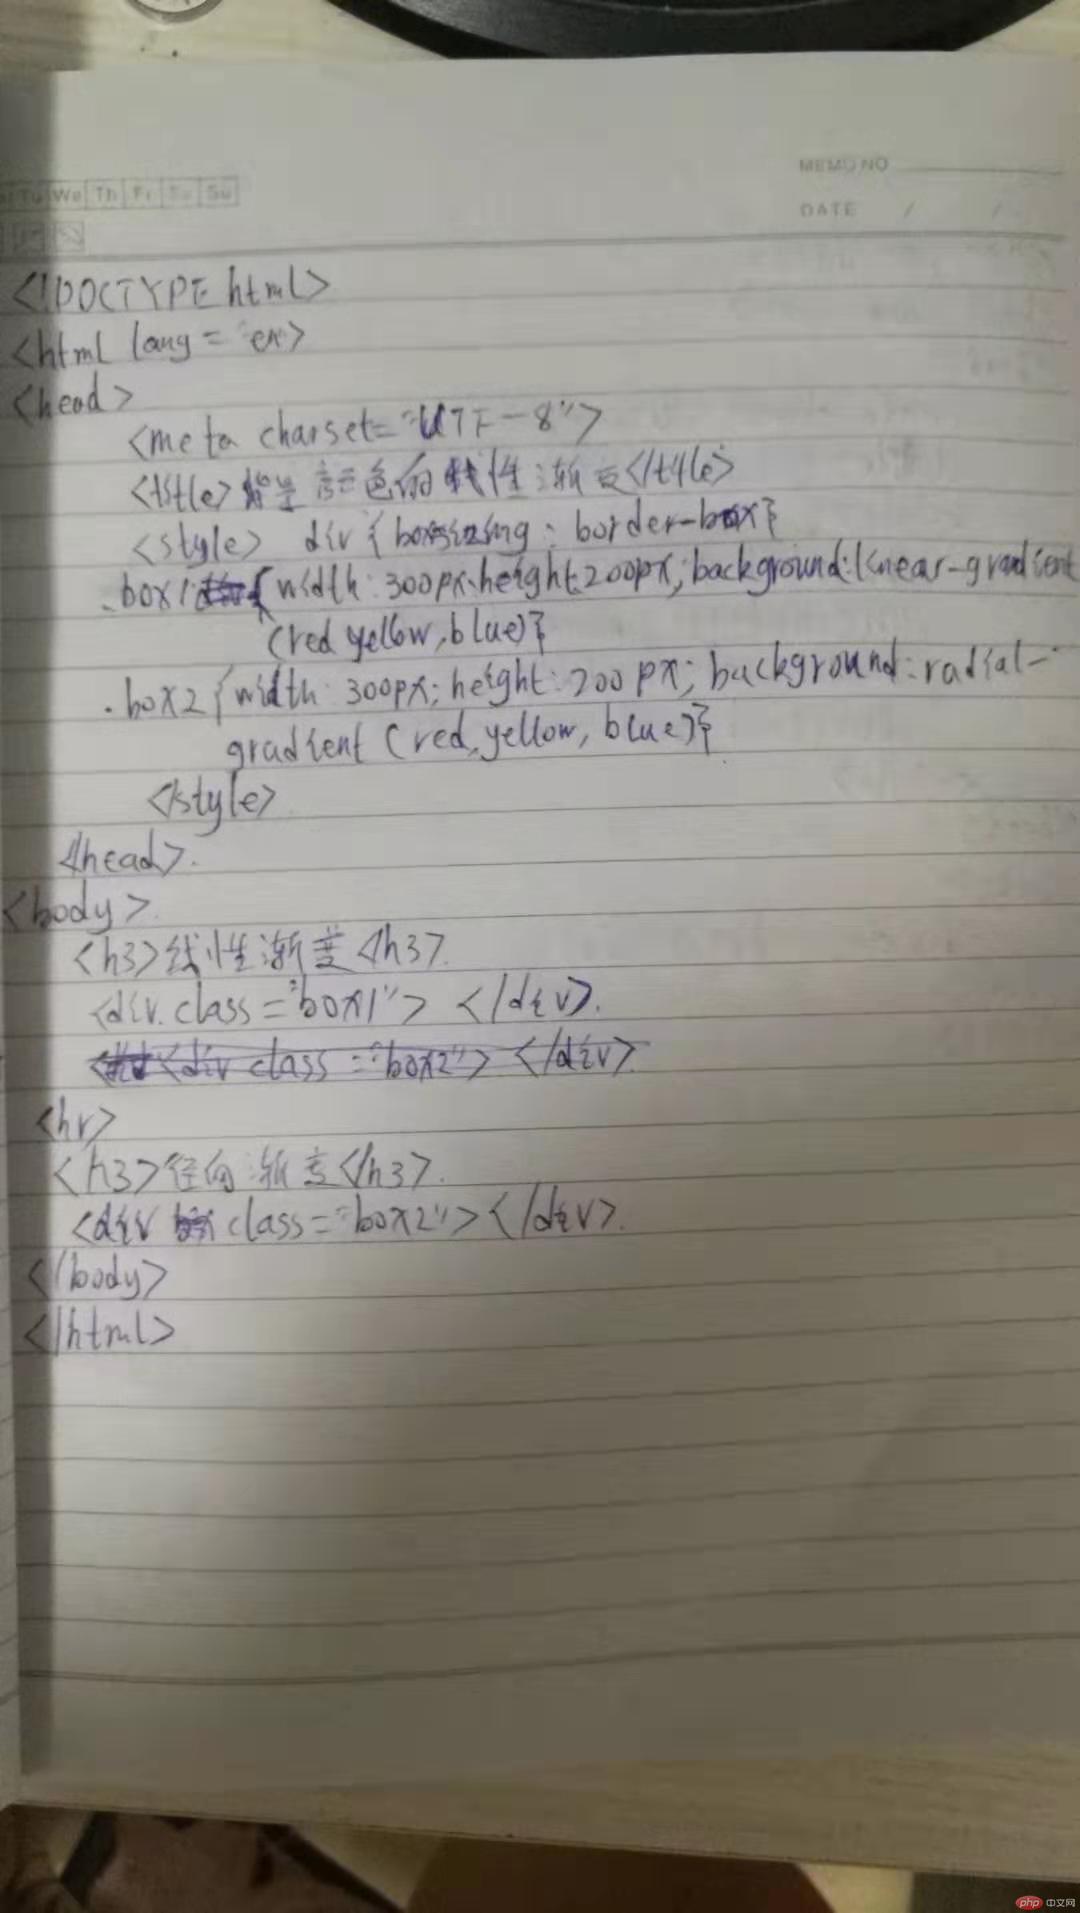 MEMO NO
Tu We Th Fr Sa Su
DATE / /
<!DOCTYPE html>
<html lang="en">
<head>
<meta charset="UTF-8">
<title>背景颜色的线性渐变</title>
<style> div{box-sizing: border-box}
.box1{width:300px;height:200px;background:linear-gradient
(red yellow,blue)}
.box2{width:300px;height:200px;background:radial-
gradient(red,yellow,blue)}
</style>
</head>.
<body>.
<h3>线性渐变</h3>.
<div class="box1"> </div>.
<div class="box2"> </div>.
<hr>
<h3>径向渐变</h3>.
<div class="box2"></div>.
</body>
</html>
php 中文网